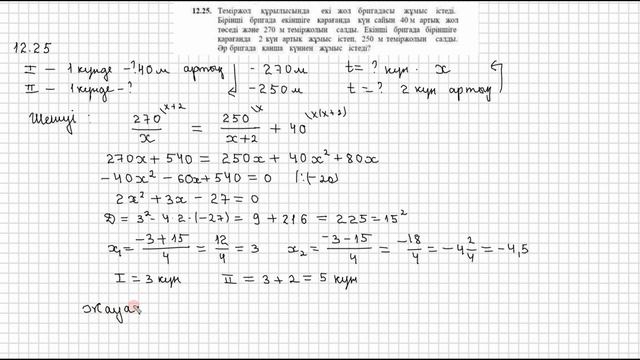 12.25. Теміржол құрылысында екі жол бригадасы жұмыс істеді.
Бірінші бригада екіншіге қарағанда күн сайын 40 м артық жол
төседі және 270 м теміржолын салды. Екінші бригада біріншіге
қарағанда 2 күн артық жұмыс істеп, 250 м теміржолын салды.
Әр бригада қанша күннен жұмыс істеді?
12.25
I – 1 күнде -? 40м артық - 270м t = ? күн. x
II – 1 күнде -? - 250м t = ? 2 күн артық
Шешуі: 270/x \x+2 = 250/x+2 \x + 40 \x(x+2)
270x + 540 = 250x + 40x² + 80x
-40x² - 60x + 540 = 0 |:(-20)
2x² + 3x - 27 = 0
D = 3² - 4·2·(-27) = 9 + 216 = 225 = 15²
x₁ = -3+15/4 = 12/4 = 3 x₂ = -3-15/4 = -18/4 = -4 2/4 = -4,5
I = 3 күн II = 3 + 2 = 5 күн
Жауа